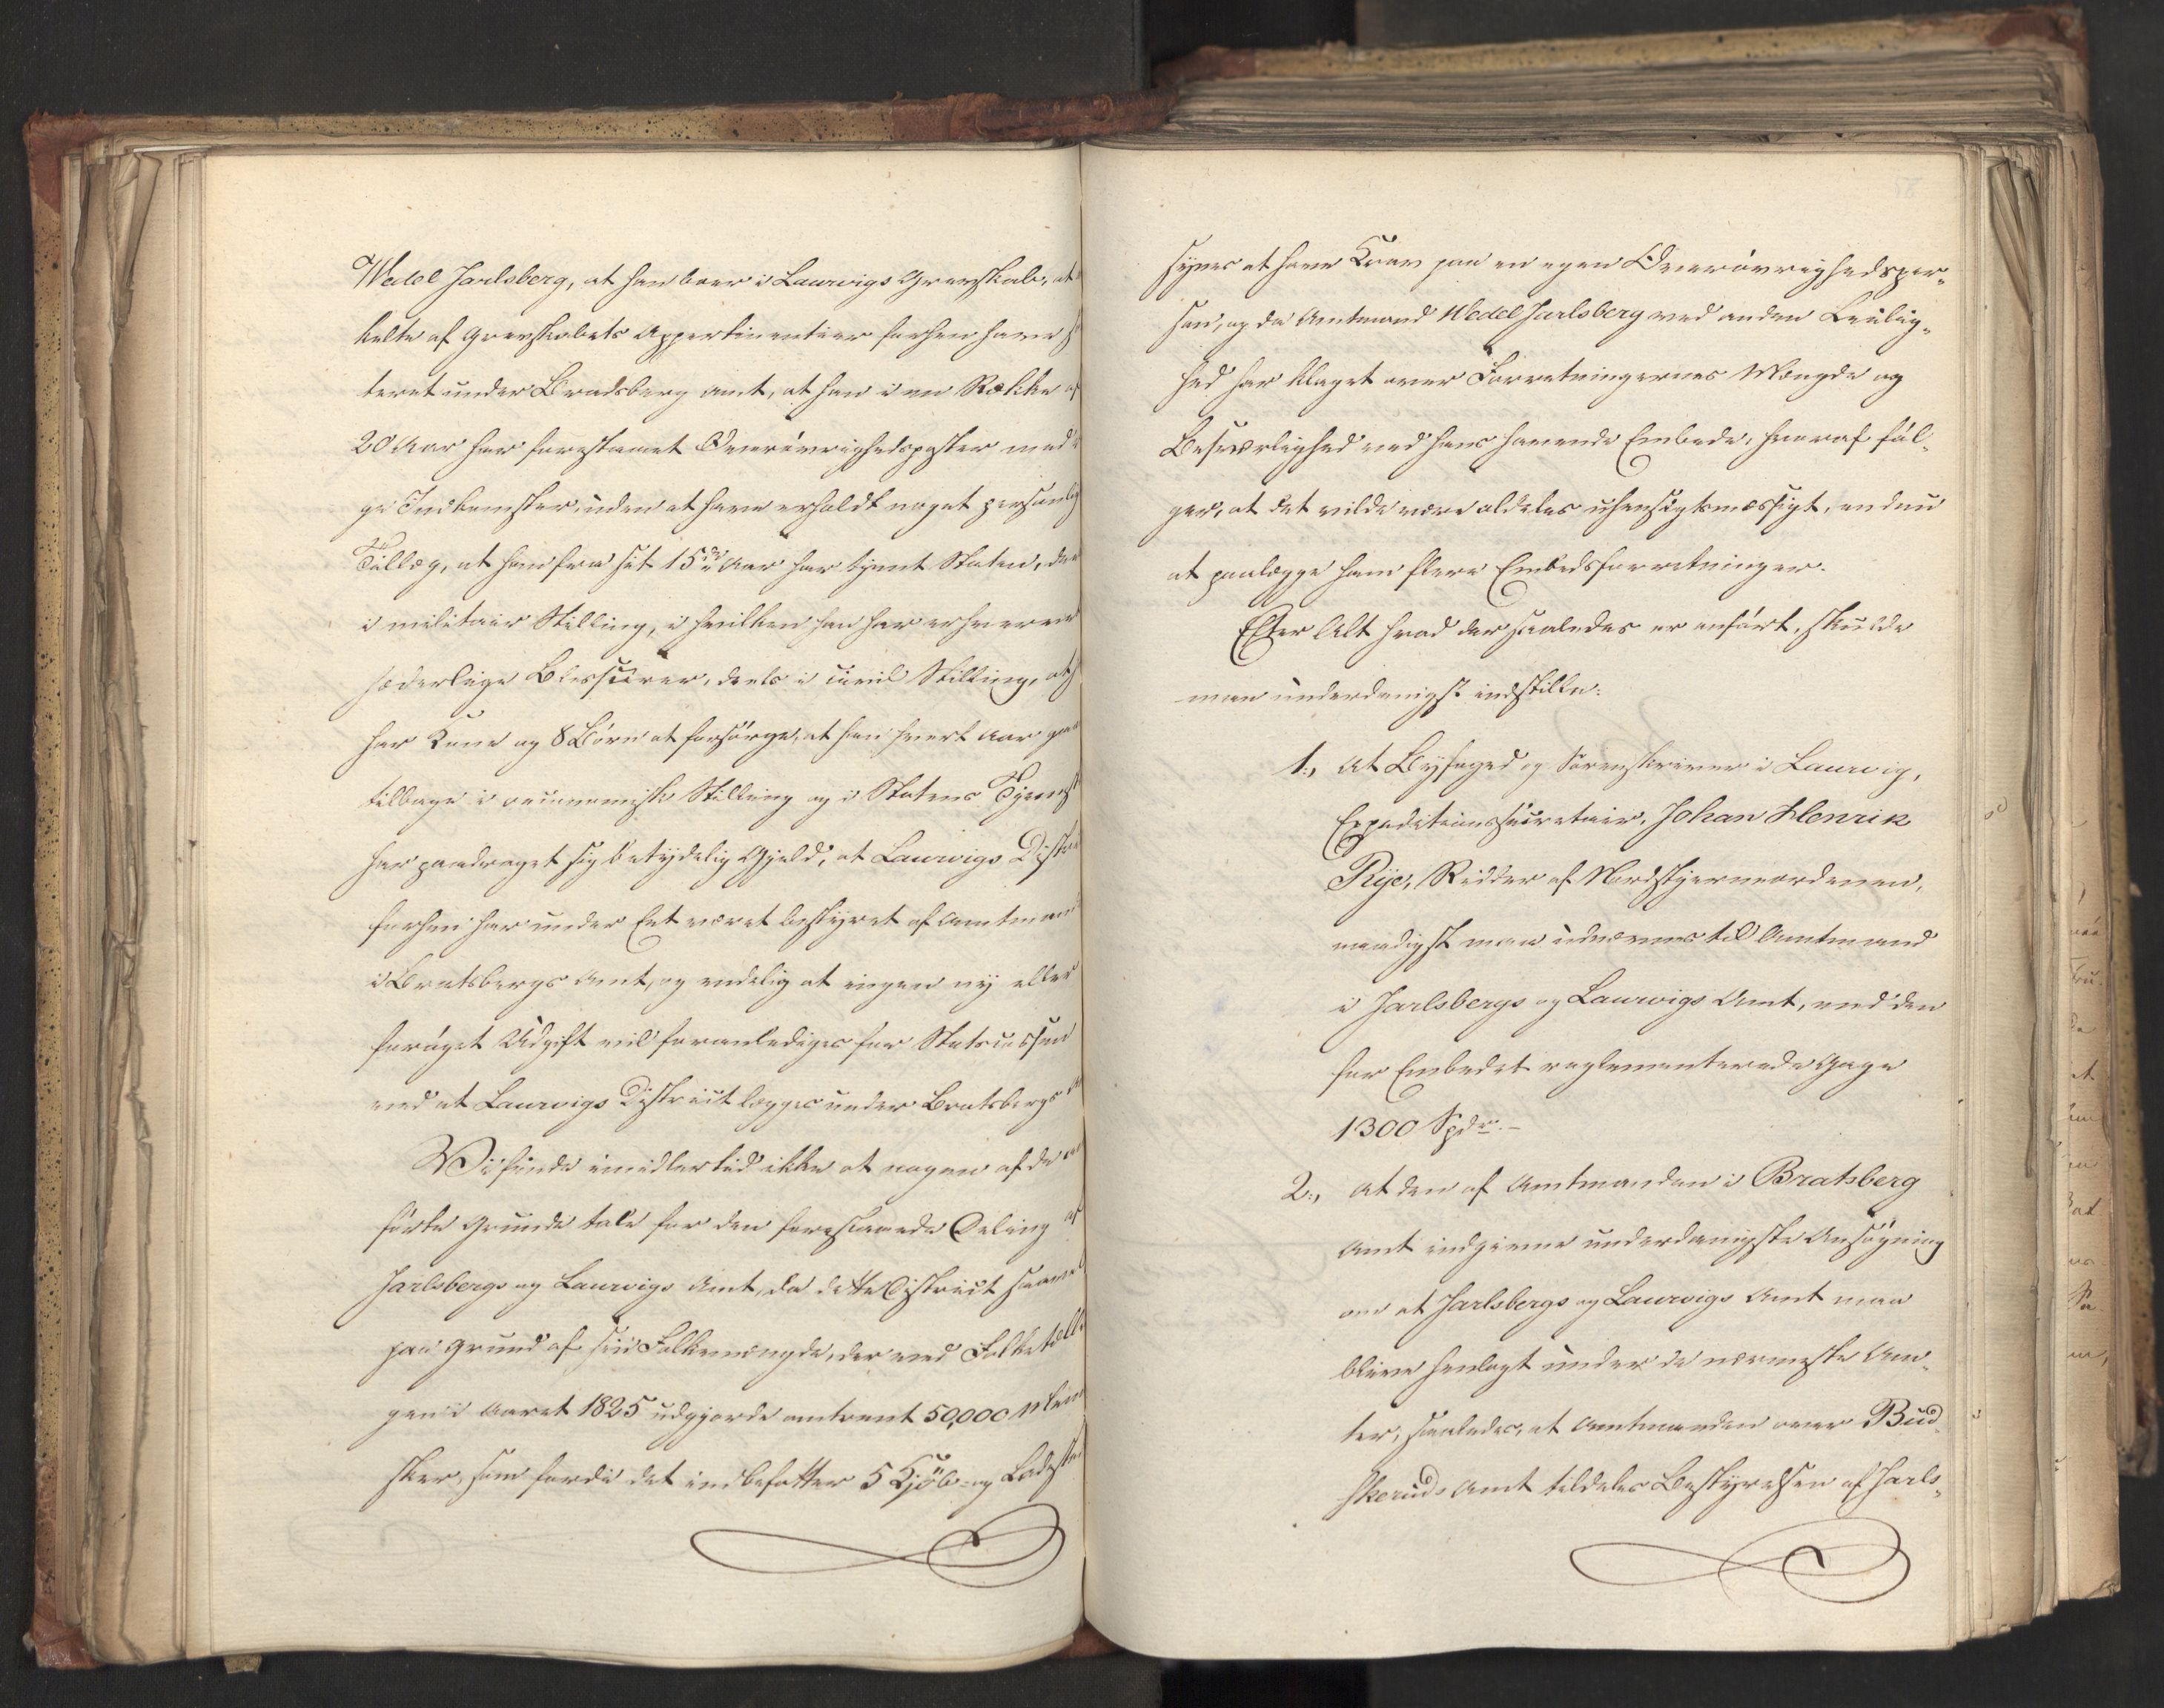 Wedel Jarlsberg, at han boer i Laurvigs Grevskab, at
kelte af Grevskabets Appertinentier forhen have
teret under Bradsberg Amt, at han i en Række af
20 Aar har forestaaet Overøvrighedsposter med
ge Indkomster, uden at have erholdt noget personlig
Tillæg, at han fra sit 15de Aar har tjent Staten, deels
i militair Stilling, i hvilken han har erhvervet
hæderlige Blessurer, deels i civil Stilling, at
har Kone og 8 Børn at forsørge, at han hvert Aar gaaer
tilbage i oeconomisk Stilling og i Statens Tjeneste
har paadraget sig betydelig Gjeld, at Laurvigs Distri
forhen har under Eet været bestyret af Amtmand
i Bratsbergs Amt, og endelig at ingen ny eller
forøget Udgift vil foranlediges for Statscassen
ved at Laurvigs District lægges under Bratsbergs
Vi finde imidlertid ikke at nogen af de
førte Grunde tale for den foreslaaede Deling af
Jarlsbergs og Laurvigs Amt, da dette District saavel
paa Grund af sin Folkemængde, der ved Folketællin
gen i Aaret 1825 udgjorde omtrent 50,000 Men
sker, som fordi det indbefatter 5 Kjøb- og Ladestæ
synes at have Krav paa en egen Overøvrighedsper-
son, og da Amtmand Wedel Jarlsberg ved anden Leilig-
hed har klaget over Forretningernes Mængde og
Besværlighed ved hans havende Embede, hvoraf føl-
ger, at det vilde være aldeles uhensigtsmæssigt, endnu
at paalægge ham flere Embedsforretninger.
Efter Alt hvad der saaledes er anført, skulde
man underdanigst indstille:
1:, At Byfoged og Sorenskriver i Laurvig,
Expeditionssecretair, Johan Henrik
Rye, Ridder af Nordstjerneordenen,
naadigst maa udnævnes til Amtmand
i Jarlsbergs og Laurvigs Amt, med den
for Embedet reglementerede Gage
1300 Spdr.-
2:, At den af Amtmanden i Bratsberg
Amt indgivne underdanigste Ansøgning
om at Jarlsbergs og Laurvigs Amt maa
blive henlagt under de nærmeste Am-
ter, saaledes, at Amtmanden over Bud-
skeruds Amt tildeles Bestyrelsen af Jarls-